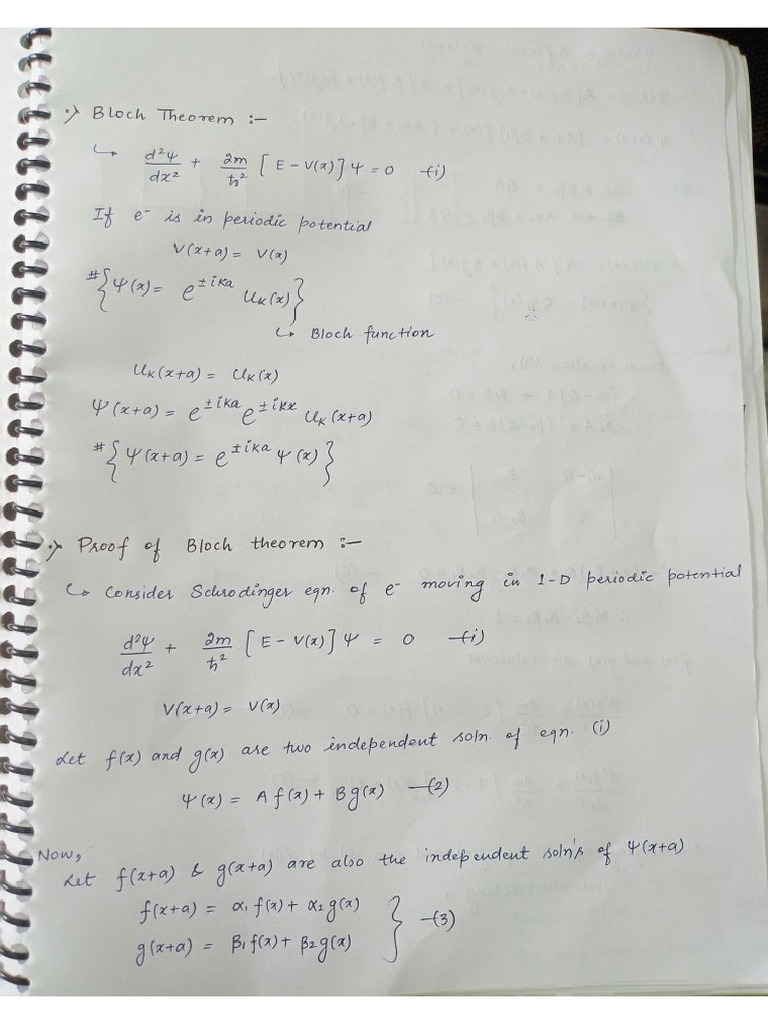 Bloch Theorem :-
d²ψ/dx² + 2m/ħ² [E - V(x)] ψ = 0 —(i)
If e⁻ is in periodic potential
V(x+a) = V(x)
# {ψ(x) = e^±ika u_K(x)}
↳ Bloch function
u_K(x+a) = u_K(x)
ψ(x+a) = e^±ika e^±ikx u_K(x+a)
# {ψ(x+a) = e^±ika ψ(x)}
Proof of Bloch theorem :-
↳ Consider Schrodinger eqn. of e⁻ moving in 1-D periodic potential
d²ψ/dx² + 2m/ħ² [E - V(x)] ψ = 0 —(i)
V(x+a) = V(x)
Let f(x) and g(x) are two independent soln. of eqn. (i)
ψ(x) = A f(x) + B g(x) —(2)
Now,
Let f(x+a) & g(x+a) are also the independent soln's of ψ(x+a)
f(x+a) = α₁ f(x) + α₂ g(x)
g(x+a) = β₁ f(x) + β₂ g(x) } —(3)